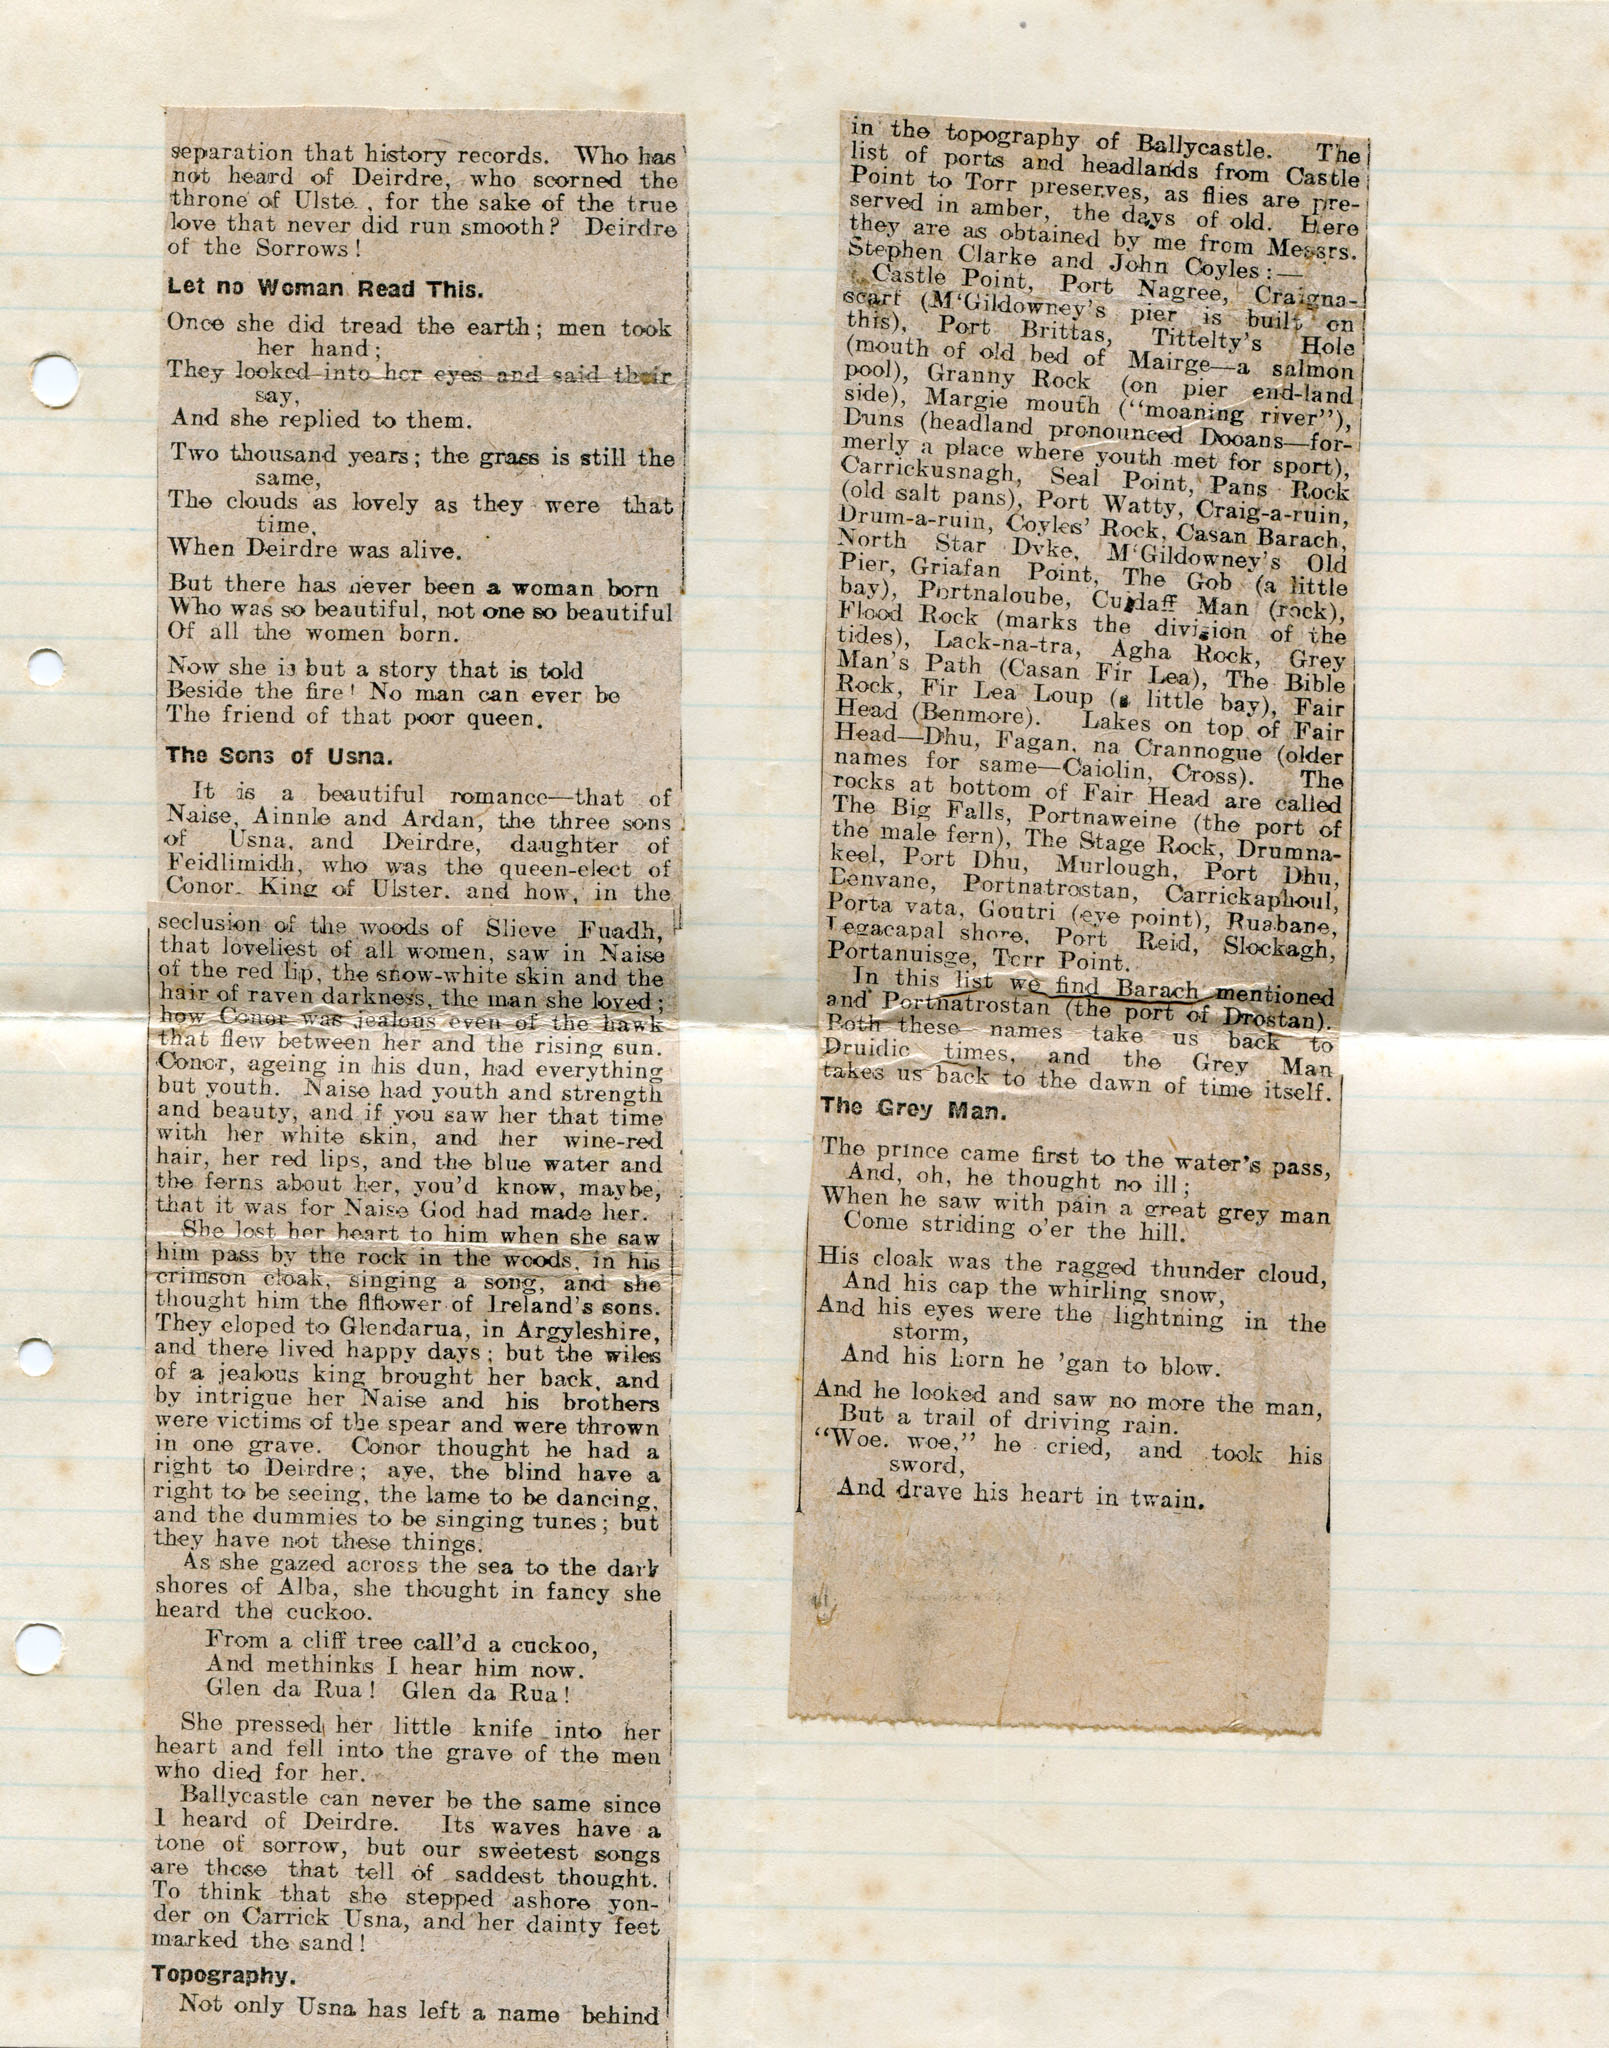 separation that history records. Who has
not heard of Deirdre, who scorned the
throne of Ulste , for the sake of the true
love that never did run smooth? Deirdre
of the Sorrows!
Let no Woman Read This.
Once she did tread the earth; men took
her hand;
They looked into her eyes and said their
say,
And she replied to them.
Two thousand years; the grass is still the
same,
The clouds as lovely as they were that
time,
When Deirdre was alive.
But there has never been a woman born
Who was so beautiful, not one so beautiful
Of all the women born.
Now she is but a story that is told
Beside the fire! No man can ever be
The friend of that poor queen.
The Sons of Usna.
It is a beautiful romance—that of
Naise, Ainnle and Ardan, the three sons
of Usna, and Deirdre, daughter of
Feidlimidh, who was the queen-elect of
Conor, King of Ulster, and how, in the
seclusion of the woods of Slieve Fuadh,
that loveliest of all women, saw in Naise
of the red lip, the snow-white skin and the
hair of raven darkness, the man she loved;
how Conor was jealous even of the hawk
that flew between her and the rising sun.
Conor, ageing in his dun, had everything
but youth. Naise had youth and strength
and beauty, and if you saw her that time
with her white skin, and her wine-red
hair, her red lips, and the blue water and
the ferns about her, you'd know, maybe,
that it was for Naise God had made her.
She lost her heart to him when she saw
him pass by the rock in the woods, in his
crimson cloak, singing a song, and she
thought him the flflower of Ireland's sons.
They eloped to Glendarua, in Argyleshire,
and there lived happy days; but the wiles
of a jealous king brought her back, and
by intrigue her Naise and his brothers
were victims of the spear and were thrown
in one grave. Conor thought he had a
right to Deirdre; aye, the blind have a
right to be seeing, the lame to be dancing,
and the dummies to be singing tunes; but
they have not these things.
As she gazed across the sea to the dark
shores of Alba, she thought in fancy she
heard the cuckoo.
From a cliff tree call'd a cuckoo,
And methinks I hear him now.
Glen da Rua! Glen da Rua!
She pressed her little knife into her
heart and fell into the grave of the men
who died for her.
Ballycastle can never be the same since
I heard of Deirdre. Its waves have a
tone of sorrow, but our sweetest songs
are those that tell of saddest thought.
To think that she stepped ashore yon-
der on Carrick Usna, and her dainty feet
marked the sand!
Topography.
Not only Usna has left a name behind
in the topography of Ballycastle. The
list of ports and headlands from Castle
Point to Torr preserves, as flies are pre-
served in amber, the days of old. Here
they are as obtained by me from Messrs.
Stephen Clarke and John Coyles:—
Castle Point, Port Nagree, Craigna-
scarf (M'Gildowney's pier is built on
this), Port Brittas, Tittelty's Hole
(mouth of old bed of Mairge—a salmon
pool), Granny Rock (on pier end-land
side), Margie mouth ("moaning river"),
Duns (headland pronounced Dooans—for-
merly a place where youth met for sport),
Carrickusnagh, Seal Point, Pans Rock
(old salt pans), Port Watty, Craig-a-ruin,
Drum-a-ruin, Coyles' Rock, Casan Barach,
North Star Dyke, M'Gildowney's Old
Pier, Griafan Point, The Gob (a little
bay), Portnaloube, Man (rock),
Flood Rock (marks the division of the
tides), Lack-na-tra, Agha Rock, Grey
Man's Path (Casan Fir Lea), The Bible
Rock, Fir Lea Loup (a little bay), Fair
Head (Benmore). Lakes on top of Fair
Head—Dhu, Fagan, na Crannogue (older
names for same—Caiolin, Cross). The
rocks at bottom of Fair Head are called
The Big Falls, Portnaweine (the port of
the male fern), The Stage Rock, Drumna-
keel, Port Dhu, Murlough, Port Dhu,
Benvane, Portnatrostan, Carrickaphoul,
Porta vata, Goutri (eye point), Ruabane,
Legacapal shore, Port Reid, Slockagh,
Portanuisge, Torr Point.
In this list we find Barach mentioned
and Portnatrostan (the port of Drostan).
Both these names take us back to
Druidic times, and the Grey Man
takes us back to the dawn of time itself.
The Grey Man.
The prince came first to the water's pass,
And, oh, he thought no ill;
When he saw with pain a great grey man
Come striding o'er the hill.
His cloak was the ragged thunder cloud,
And his cap the whirling snow,
And his eyes were the lightning in the
storm,
And his horn he 'gan to blow.
And he looked and saw no more the man,
But a trail of driving rain.
"Woe, woe," he cried, and took his
sword,
And drave his heart in twain.